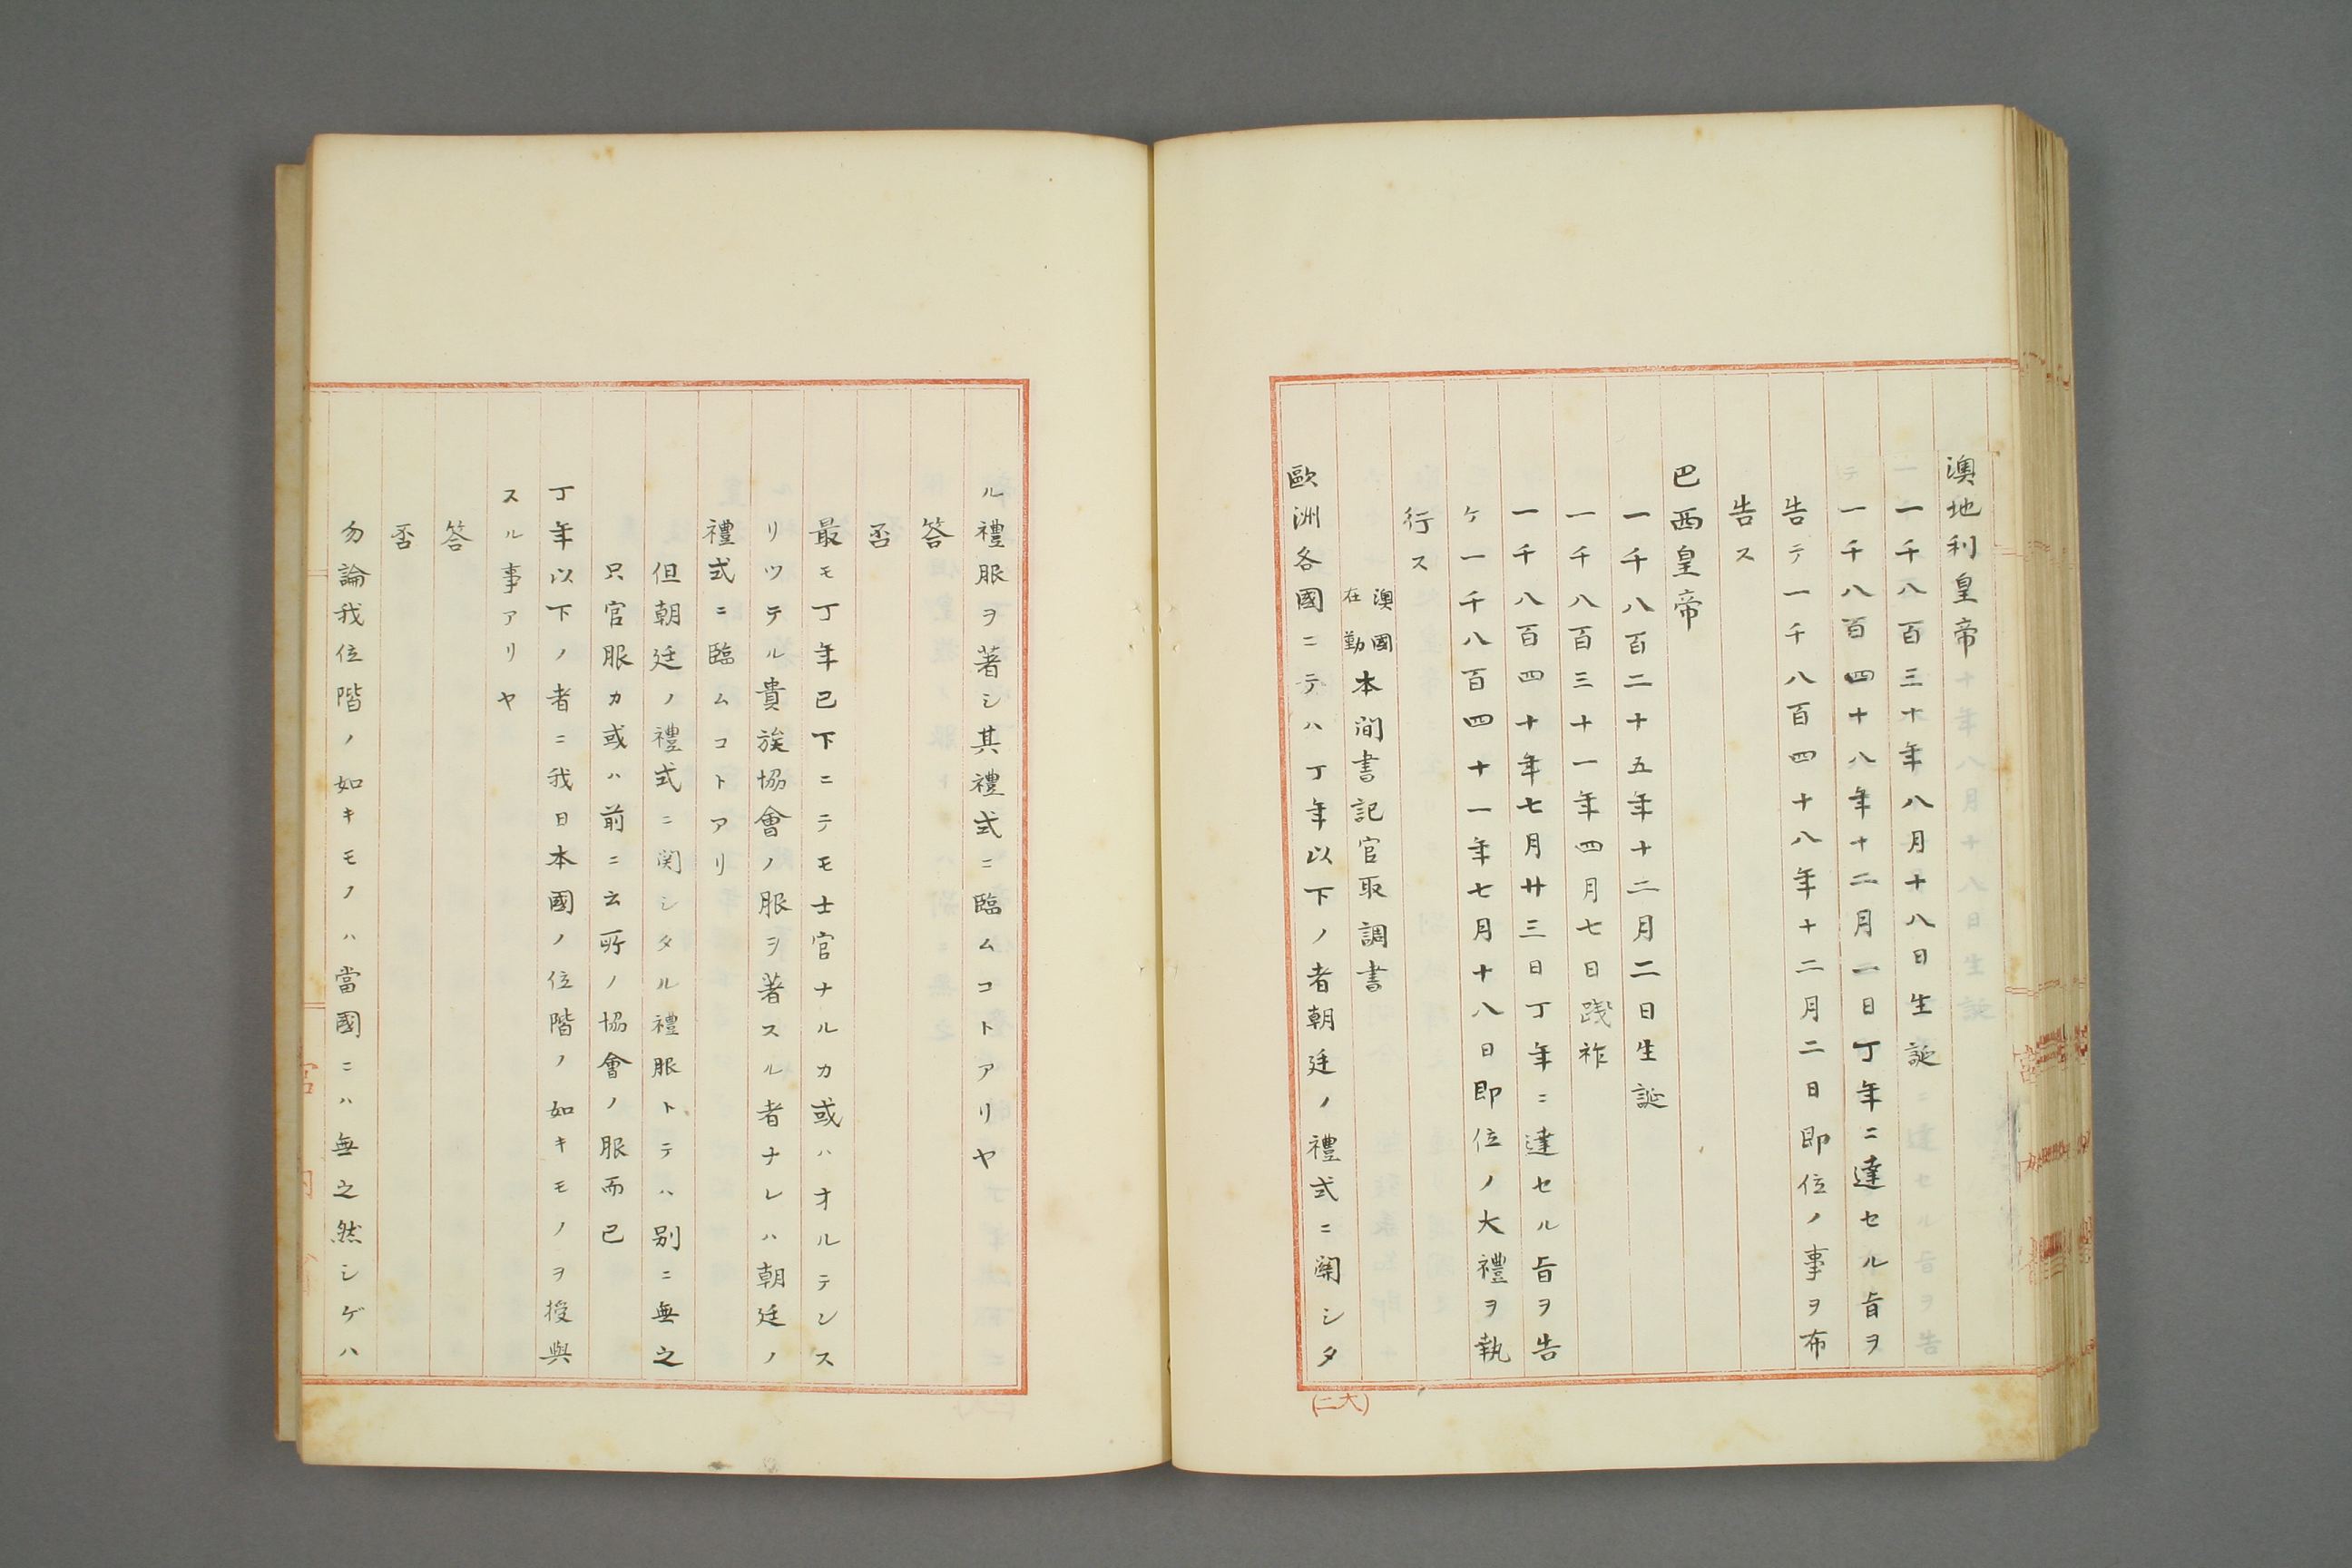 澳地利皇帝
一千八百三十年八月十八日生誕
一千八百四十八年十二月一日丁年ニ達セル旨ヲ
告テ一千八百四十八年十二月二日即位ノ事ヲ布
告ス
巴西皇帝
一千八百二十五年十二月二日生誕
一千八百三十一年四月七日踐祚
一千八百四十年七月廿三日丁年ニ達セル旨ヲ告
ケ一千八百四十一年七月十八日即位ノ大禮ヲ執
行ス
澳國在勤本間書記官取調書
歐洲各國ニテハ丁年以下ノ者朝廷ノ禮式ニ関シタ
(二大)
ル禮服ヲ著シ其禮式ニ臨ムコトアリヤ
答
否
最モ丁年已下ニテモ士官ナルカ或ハオルテンス
リツテル貴族協會ノ服ヲ著スル者ナレハ朝廷ノ
禮式ニ臨ムコトアリ
但朝廷ノ禮式ニ関シタル禮服トテハ別ニ無之
只官服カ或ハ前ニ云所ノ協會ノ服而已
丁年以下ノ者ニ我日本國ノ位階ノ如キモノヲ授與
スル事アリヤ
答
否
勿論我位階ノ如キモノハ當國ニハ無之然シゲハ